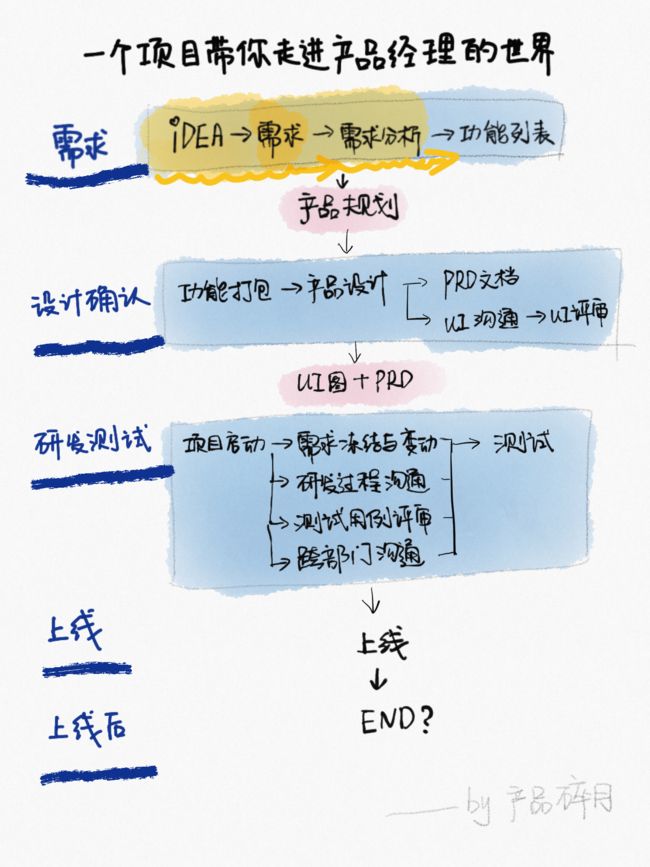 一个项目带你走进产品经理的世界
需求
iDEA→需求→需求分析→功能列表
产品规划
设计确认
功能打包→产品设计→PRD文档
→UI沟通→UI评审
UI图+PRD
研发测试
项目启动→需求冻结与变动→测试
→研发过程沟通
→测试用例评审
→跨部门沟通
上线
上线
上线后
END?
——by 产品碎月